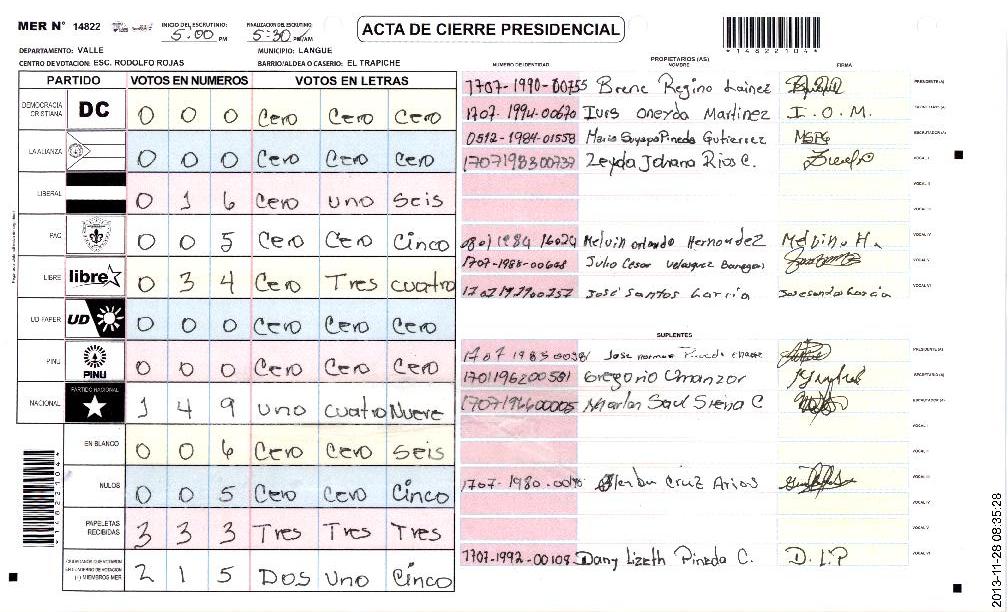 MER N° 14822
INICIO DEL ESCRUTINIO: 5:00 PM
FINALIZACION DEL ESCRUTINIO: 5:30 PM/AM
ACTA DE CIERRE PRESIDENCIAL
*14822104*
DEPARTAMENTO: VALLE
MUNICIPIO: LANGUE
CENTRO DE VOTACION: ESC. RODOLFO ROJAS
BARRIO/ALDEA O CASERIO: EL TRAPICHE
PARTIDO VOTOS EN NUMEROS VOTOS EN LETRAS
DEMOCRACIA CRISTIANA DC 0 0 0 Cero Cero Cero
LA ALIANZA 0 0 0 Cero Cero Cero
LIBERAL 0 1 6 Cero uno Seis
PAC 0 0 5 Cero Cero Cinco
LIBRE libre 0 3 4 Cero Tres cuatro
UD FAPER UD 0 0 0 Cero Cero Cero
PINU PINU 0 0 0 Cero Cero Cero
NACIONAL PARTIDO NACIONAL 1 4 9 uno cuatro Nueve
EN BLANCO 0 0 6 Cero Cero Seis
NULOS 0 0 5 Cero Cero Cinco
PAPELETAS RECIBIDAS 3 3 3 Tres Tres Tres
CIUDADANOS QUE VOTARON EN CUADERNO DE VOTACION (+) MIEMBROS MER 2 1 5 Dos uno Cinco
*14822104*
PROPIETARIOS (AS)
NUMERO DE IDENTIDAD NOMBRE FIRMA
1707-1990-00755 Regino Lainez PRESIDENTE(A)
1707-1994-00670 Oneyda Martinez I.O.M. SECRETARIO(A)
0512-1984-01558 Pineda Gutierrez ESCRUTADOR(A)
1707198300737 Zeyda Johana Rios C. VOCAL I
VOCAL II
VOCAL III
0801 1984 16024 Melvin orlando Hernandez Melvin H. VOCAL IV
Julio Cesar Velasquez VOCAL V
José Santos Garcia VOCAL VI
SUPLENTES
Jose Pineda PRESIDENTE(A)
1701196200581 Gregorio Umanzor SECRETARIO(A)
1707196600005 Marlon Saul C ESCRUTADOR(A)
VOCAL I
VOCAL II
1707-1980- Cruz Arias VOCAL III
VOCAL IV
VOCAL V
1707-1992-00109 Dany Lizeth Pineda C. D.L.P VOCAL VI
2013-11-28 08:35:28